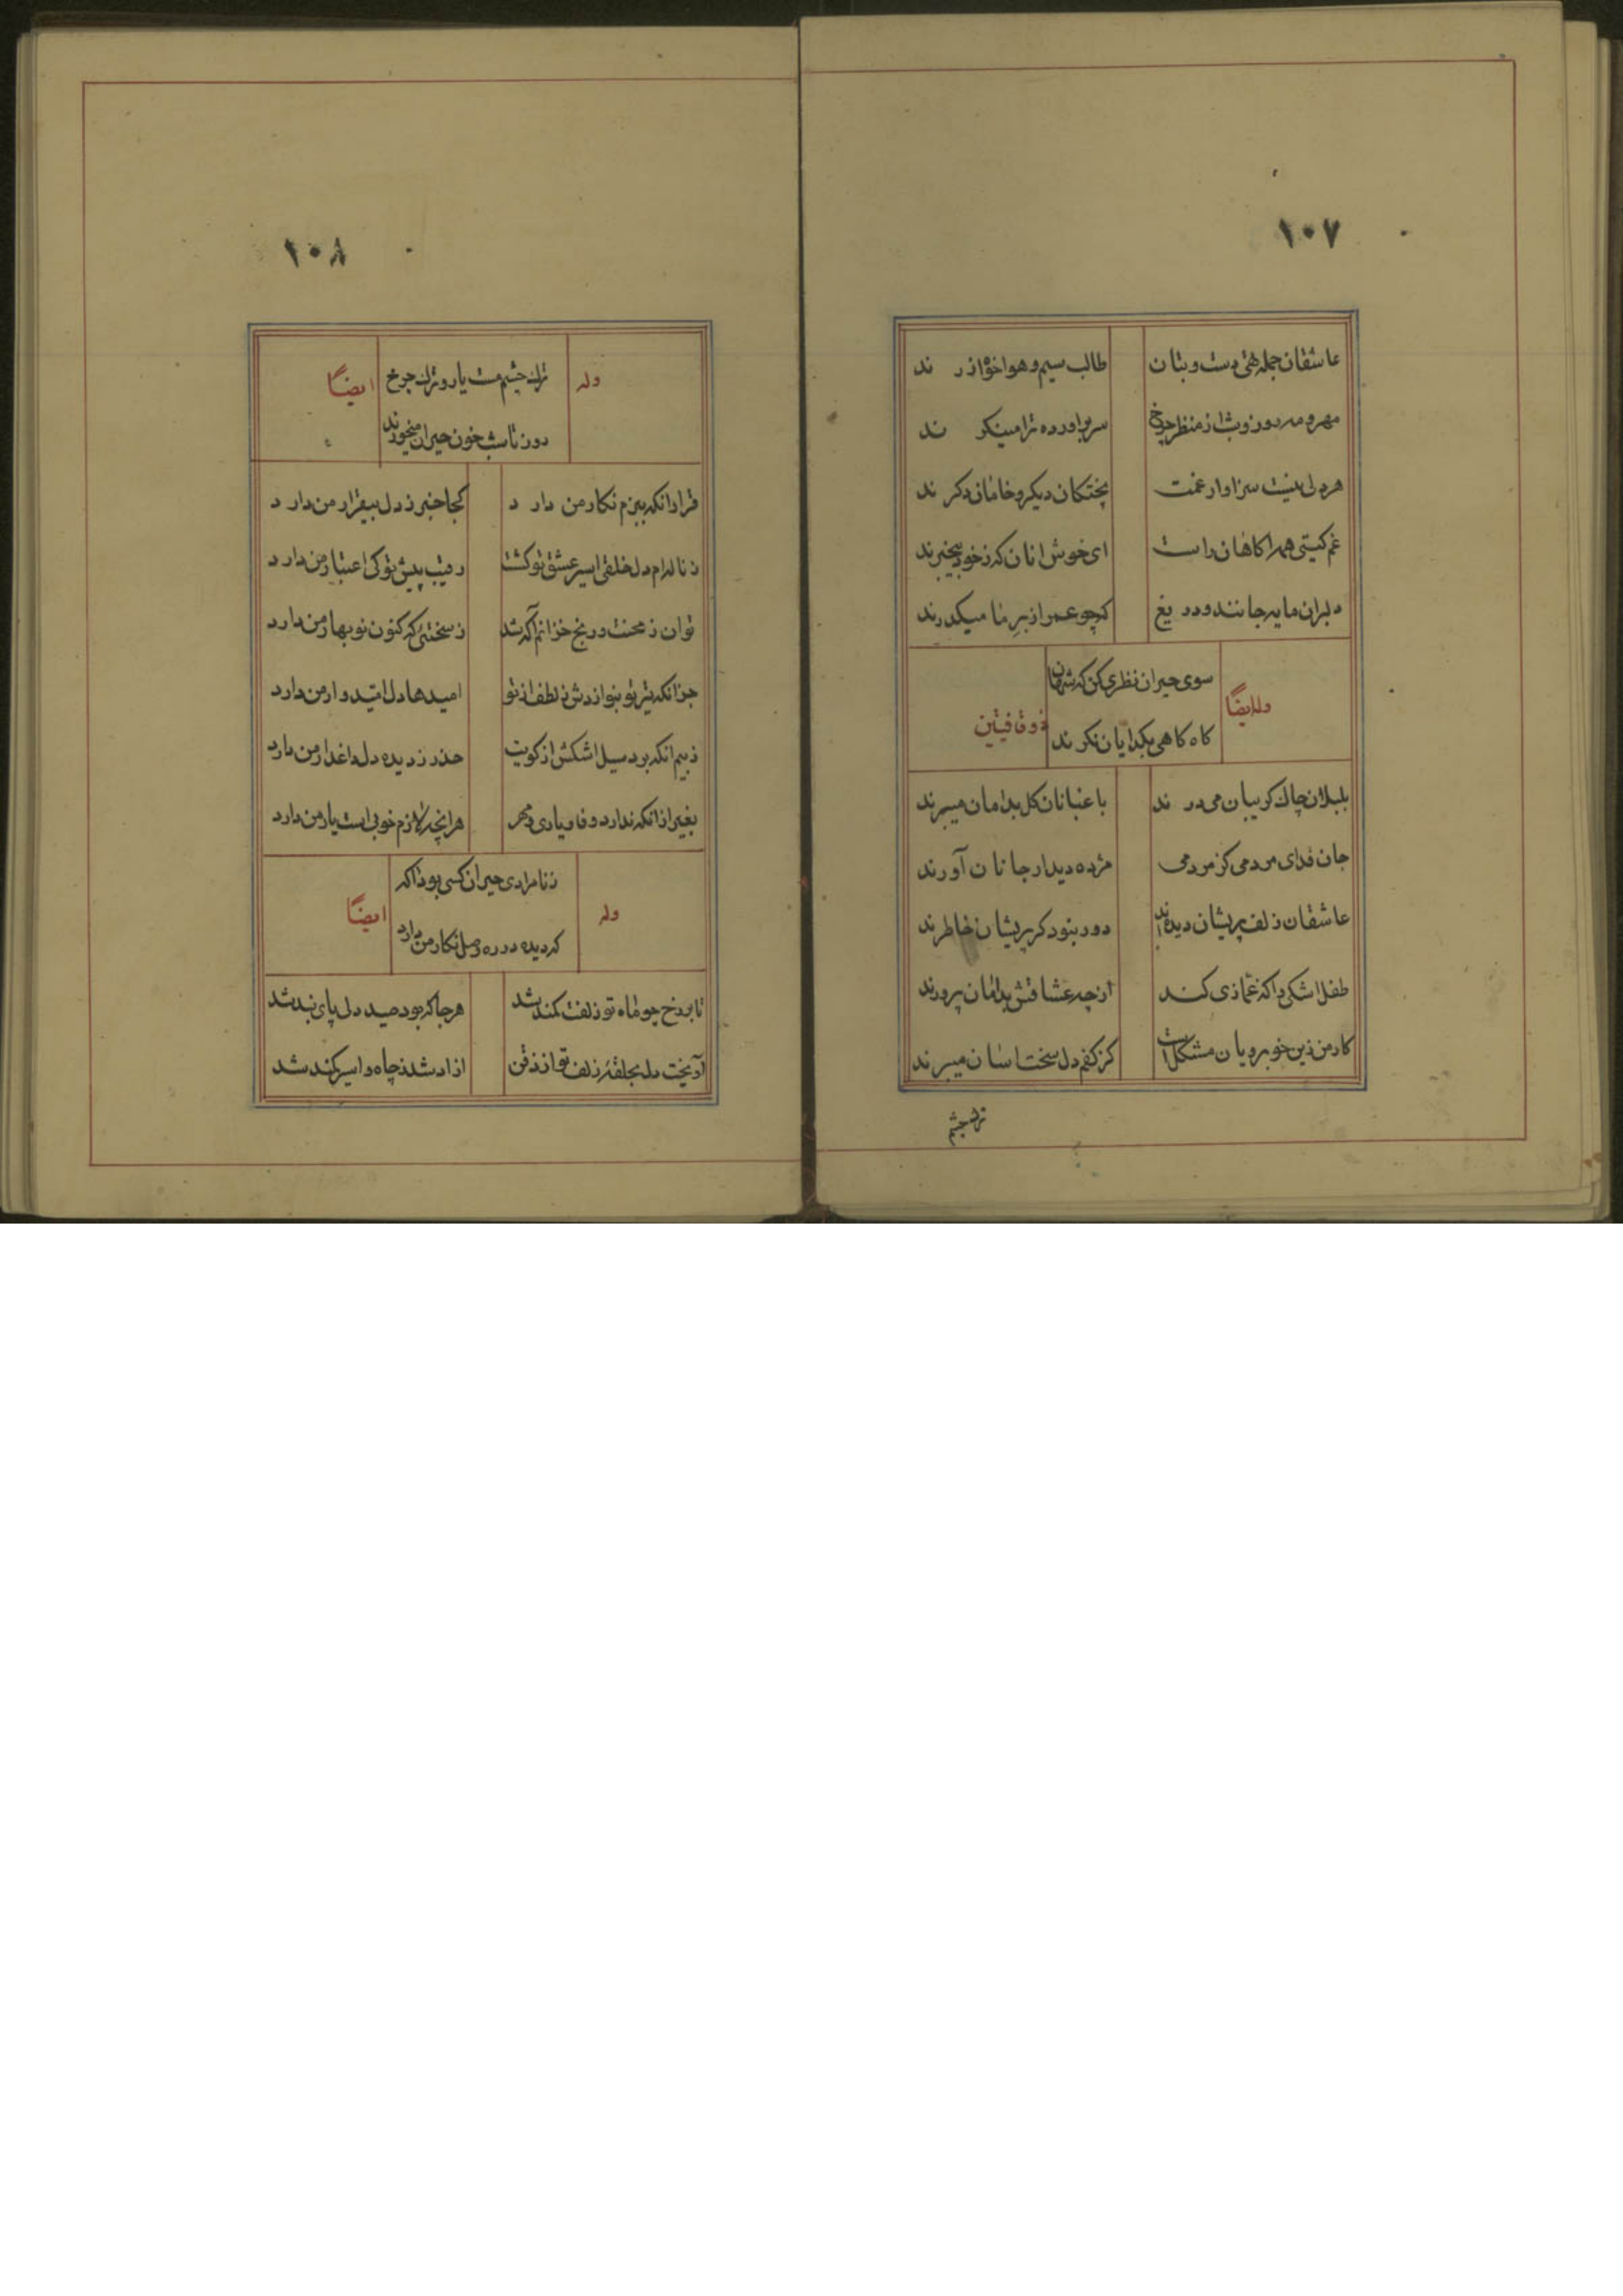 ۱۰۷
عاشقان جمله تهی دست و بتان
طالب سیم و هواخواه زرند
مهر و مه روز و شب از منظر چرخ
سر براورده ترا مینکرند
هر دلی نیست سزاوار غمت
پختکان دیکر و خامان دکرند
غم کیتی همه اکاهان راست
ای خوش انان که ز خود بیخبرند
دلبران مایه جانند و دریغ
که چو عمر از بر ما میکذرند
وله ایضاً
سوی حیران نظری کن که شهان
کاه کاهی بکدایان نکرند
ذوقافیتین
بلبلان چاک کریبان می درند
باغبانان کل بدامان میبرند
جان فدای مردمی کز مردمی
مژده دیدار جانان آورند
عاشقان زلف پریشان دیده اند
دور نبود کر پریشان خاطرند
طفل اشکی را که غمازی کند
از چه عشاقش بدامان پرورند
کار من زین خوبرویان مشکل است
کز کفم دل سخت اسان میبرند
ترک چشم
۱۰۸
وله
ترک چشم مست یار و ترک چرخ
روز تا شب خون حیران میخورند
ایضاً
قرار انکه ببزم نکار من دارد
کجا خبر ز دل بیقرار من دارد
ز ناله ام دل خلقی اسیر عشق تو کشت
رقیب پیش تو کی اعتبار من دارد
توان ز محنت و رنج خزانم آکه شد
ز سختئی که کنون نوبهار من دارد
جز انکه تیر تو بنوازدش ز لطف از تو
امیدها دل امیدوار من دارد
ز بیم انکه برد سیل اشکش از کویت
حذر ز دیده دل داغدار من دارد
بغیر از انکه ندارد وفا و یاری و مهر
هر انچه لازم خوبی است یار من دارد
وله
ز نامرادی حیران کسی بود اکه
که دیده در ره وصل نکار من دارد
ایضاً
تا بر رخ چو ماه تو زلفت کمند شد
هر جا که بود صید دل پای بند شد
آویخت دل بحلقهٔ زلف تو از ذقن
ازاد شد ز چاه و اسیر کمند شد